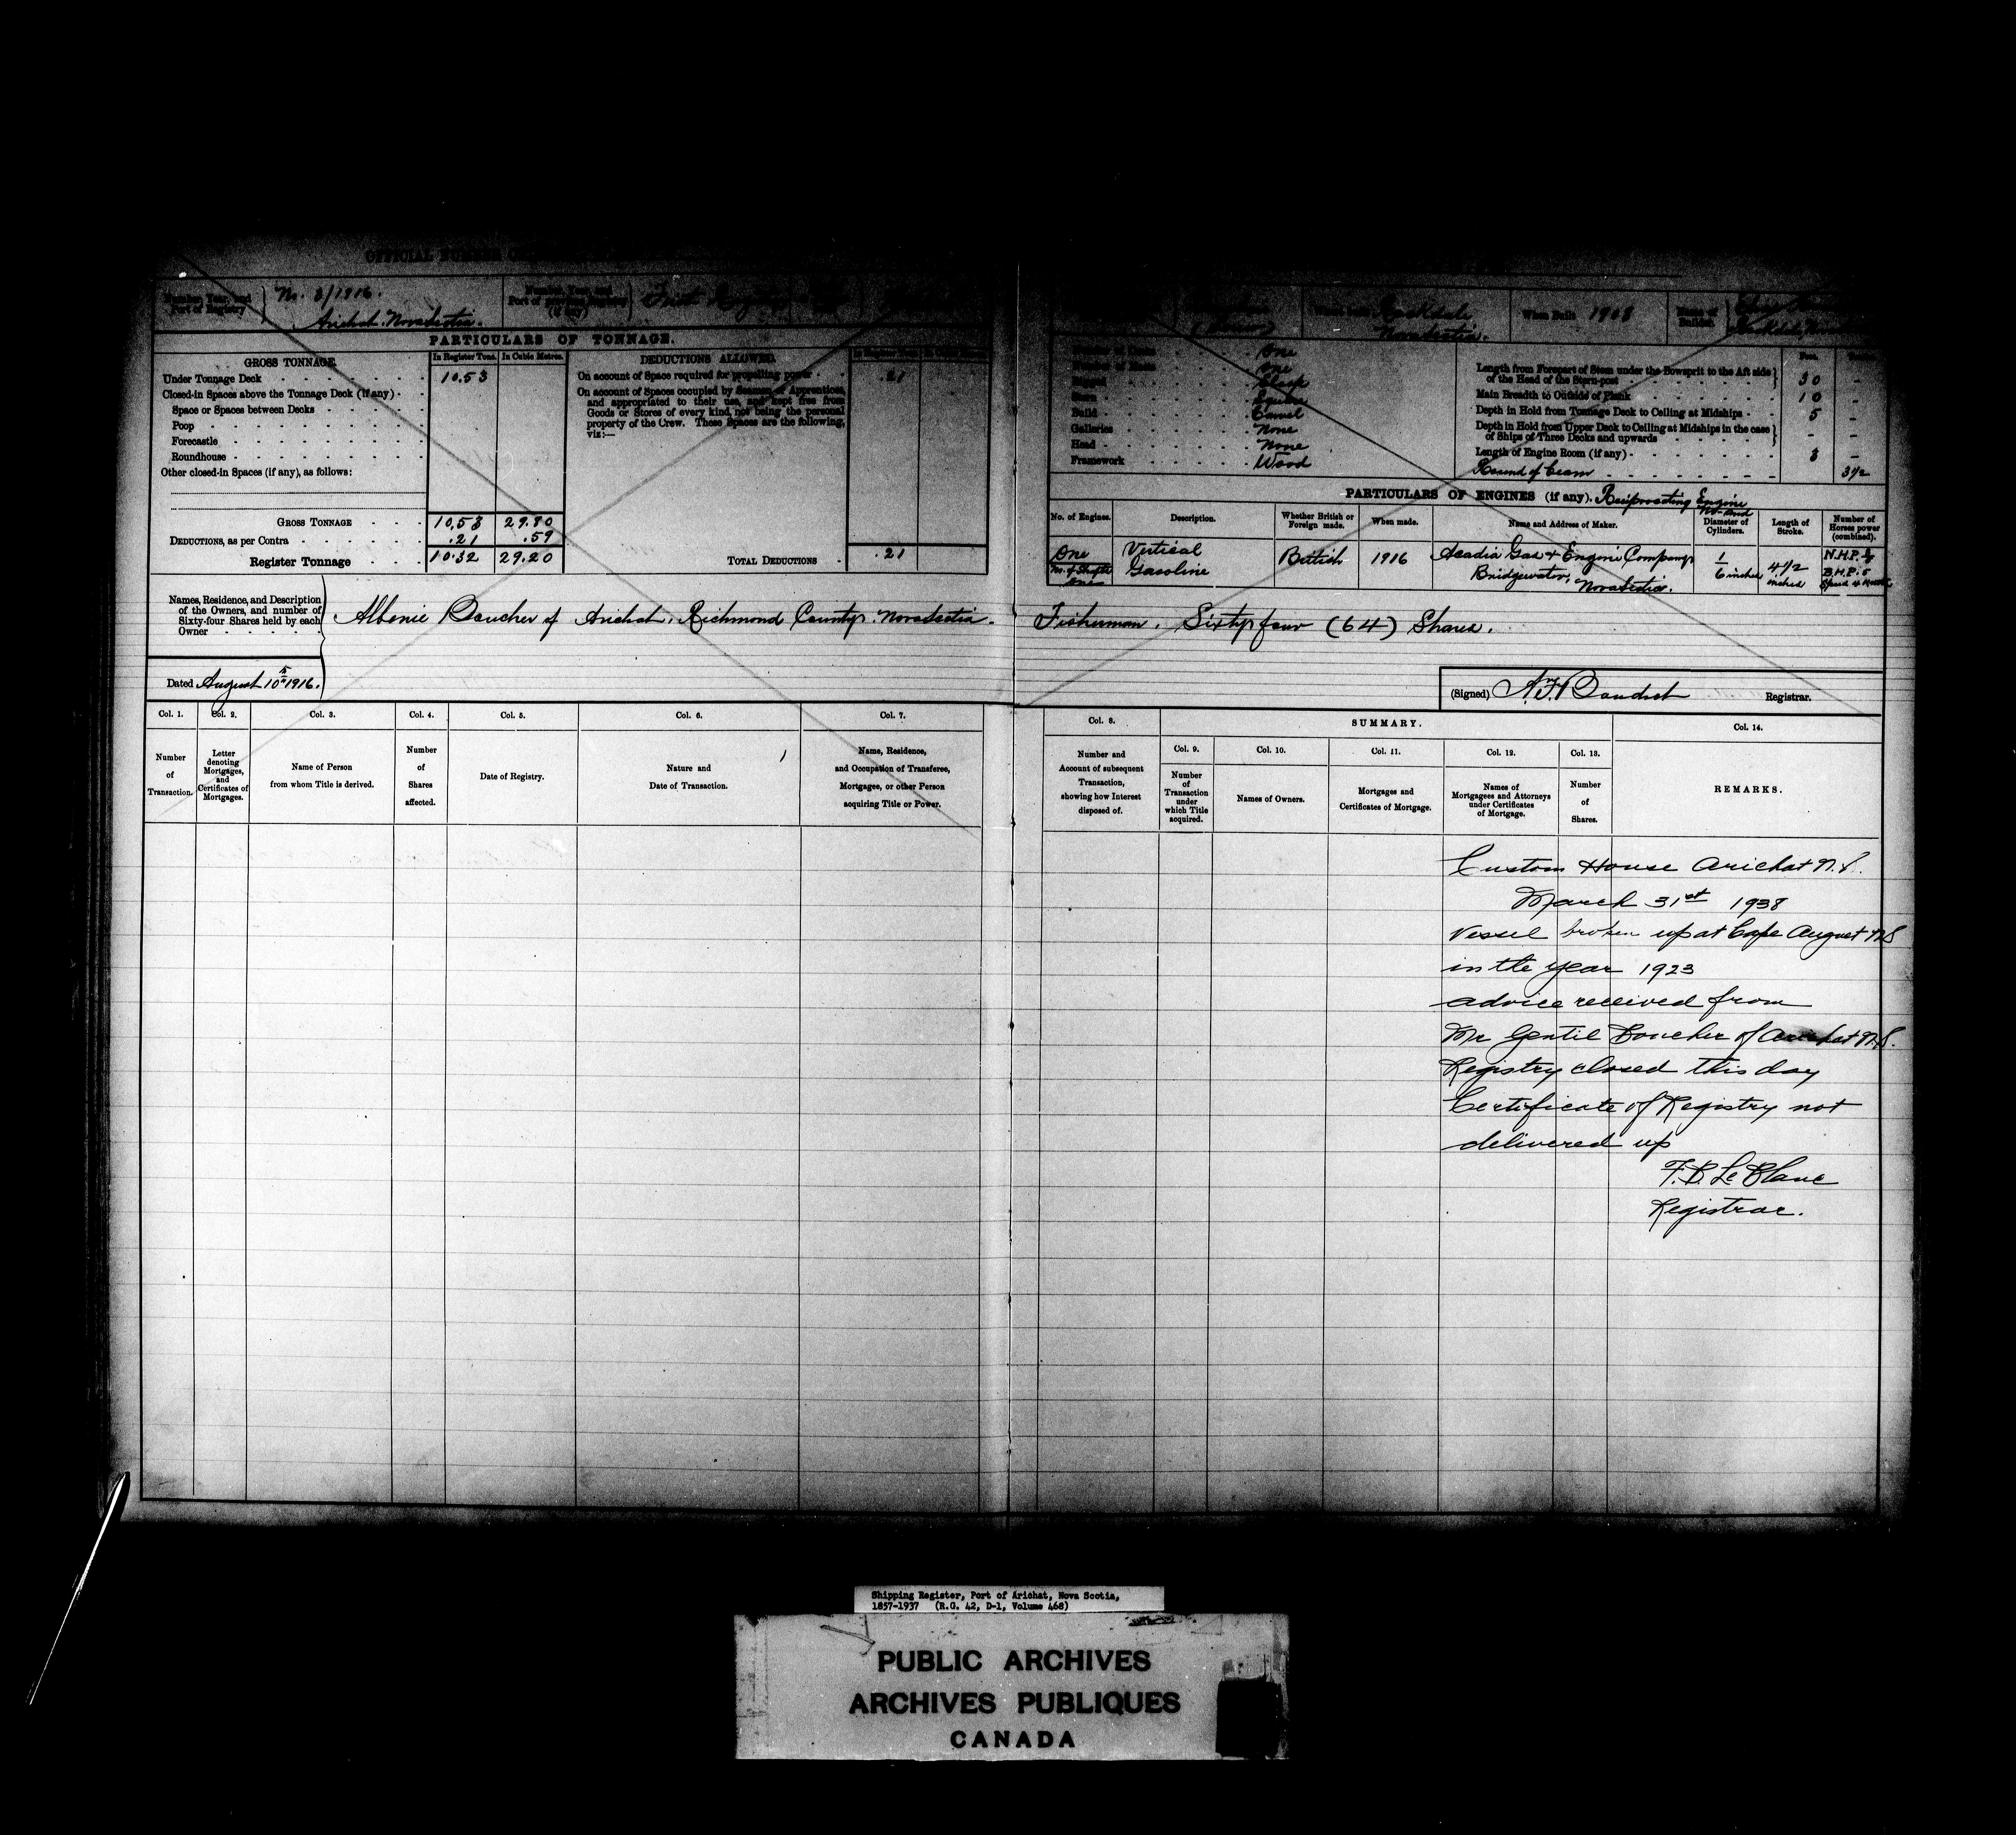 OFFICIAL NUMBER
Number, Year, and
Port of Registry
No. 3/1916.
Arichat. Nova Scotia.
Number, Year, and
Port of previous Registry
(if any)
First Registry
Where Built
Rockdale
Nova Scotia.
When Built 1908
Name of
Builder.
Rockdale
PARTICULARS OF TONNAGE.
GROSS TONNAGE. In Register Tons. In Cubic Metres.
Under Tonnage Deck 10.53
Closed-in Spaces above the Tonnage Deck (if any)
Space or Spaces between Decks
Poop
Forecastle
Roundhouse
Other closed-in Spaces (if any), as follows:
GROSS TONNAGE 10.53 29.80
DEDUCTIONS, as per Contra .21 .59
Register Tonnage 10.32 29.20
DEDUCTIONS ALLOWED.
On account of Space required for propelling power .21
On account of Spaces occupied by Seamen or Apprentices,
and appropriated to their use, and kept free from
Goods or Stores of every kind, not being the personal
property of the Crew. These Spaces are the following,
viz:—
TOTAL DEDUCTIONS .21
Number of Decks One
Number of Masts One
Rigged Sloop
Stern Square
Build Carvel
Galleries None
Head None
Framework Wood
Feet.
Length from Forepart of Stem under the Bowsprit to the Aft side
of the Head of the Stern-post 30 -
Main Breadth to Outside of Plank 10 -
Depth in Hold from Tonnage Deck to Ceiling at Midships 5 -
Depth in Hold from Upper Deck to Ceiling at Midships in the case
of Ships of Three Decks and upwards - -
Length of Engine Room (if any) 3 -
Round of beam 3½
PARTICULARS OF ENGINES (if any). Reciprocating Engine
No. of Engines. Description. Whether British or
Foreign made. When made. Name and Address of Maker. No. and
Diameter of
Cylinders. Length of
Stroke. Number of
Horses power
(combined).
One
No. of Shafts
One
Vertical
Gasoline
British
1916
Acadia Gas & Engine Company
Bridgewater,
Nova Scotia.
1
6 inches
4 1/2
inches
N.H.P.
B.H.P. 5
Names, Residence, and Description
of the Owners, and number of
Sixty-four Shares held by each
Owner
Albenie Boucher of Arichat, Richmond County. Nova Scotia. Fisherman. Sixty four (64) Shares.
Dated August 10th 1916.
(Signed) N.F. Boudrot Registrar.
Col. 1. Col. 2. Col. 3. Col. 4. Col. 5. Col. 6. Col. 7.
Number
of
Transaction.
Letter
denoting
Mortgages,
and
Certificates of
Mortgages.
Name of Person
from whom Title is derived.
Number
of
Shares
affected.
Date of Registry.
Nature and
Date of Transaction.
Name, Residence,
and Occupation of Transferee,
Mortgagee, or other Person
acquiring Title or Power.
Col. 8.
Number and
Account of subsequent
Transaction,
showing how Interest
disposed of.
SUMMARY.
Col. 9. Col. 10. Col. 11. Col. 12. Col. 13.
Number
of
Transaction
under
which Title
acquired.
Names of Owners.
Mortgages and
Certificates of Mortgage.
Names of
Mortgagees and Attorneys
under Certificates
of Mortgage.
Number
of
Shares.
Col. 14.
REMARKS.
Custom House Arichat N.S.
March 31st 1938
Vessel broken up at Cape August NS
in the year 1923
advice received from
Mr Gentil Boucher of Arichat N.S.
Registry closed this day
Certificate of Registry not
delivered up
F.B. Le Blanc
Registrar.
Shipping Register, Port of Arichat, Nova Scotia,
1857-1937 (R.G. 42, D-1, Volume 468)
PUBLIC ARCHIVES
ARCHIVES PUBLIQUES
CANADA